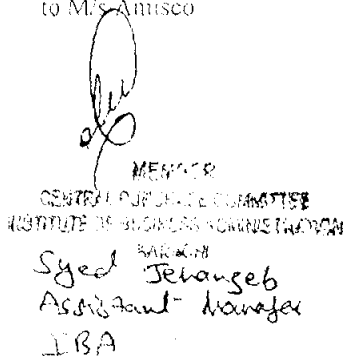 to M/s Amisco
MEMBER
CENTRAL PURCHASE COMMITTEE
INSTITUTE OF BUSINESS ADMINISTRATION
KARACHI
Syed Jehangeb
Assistant Manager
IBA